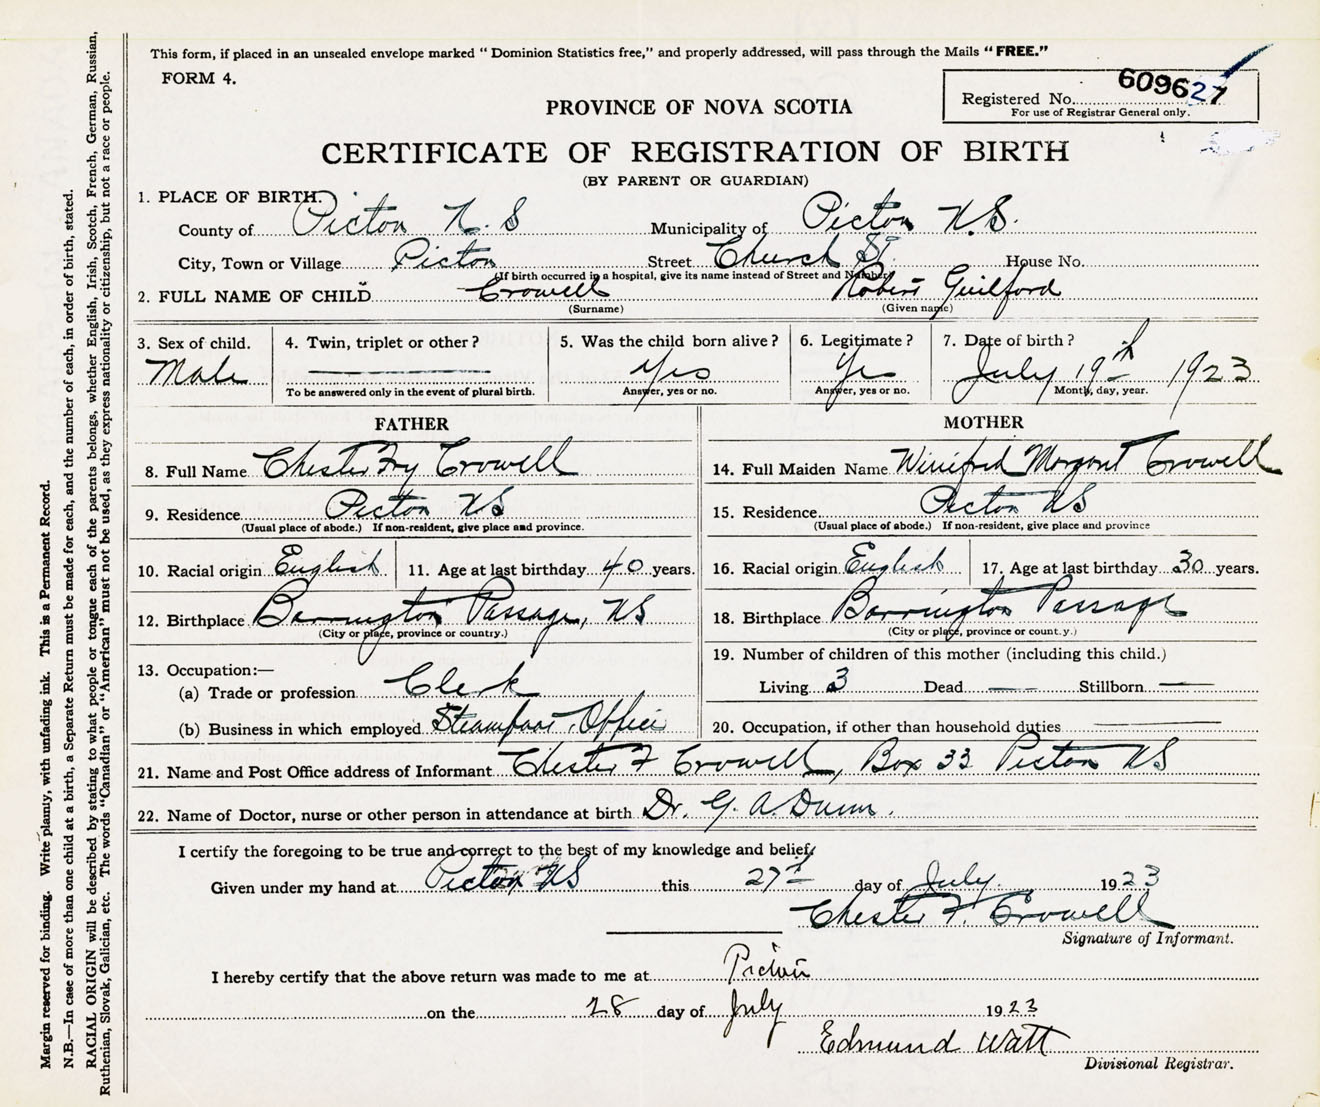 This form, if placed in an unsealed envelope marked "Dominion Statistics free," and properly addressed, will pass through the Mails "FREE."
FORM 4.
Registered No. 609627
For use of Registrar General only.
PROVINCE OF NOVA SCOTIA
CERTIFICATE OF REGISTRATION OF BIRTH
(BY PARENT OR GUARDIAN)
1. PLACE OF BIRTH.
County of Pictou N. S Municipality of Pictou N.S.
City, Town or Village Pictou Street Church St. House No.
(If birth occurred in a hospital, give its name instead of Street and Number)
2. FULL NAME OF CHILD Crowell Robert Guilford
(Surname) (Given name)
3. Sex of child. 4. Twin, triplet or other? 5. Was the child born alive? 6. Legitimate? 7. Date of birth?
Male Yes Yes July 19th 1923
To be answered only in the event of plural birth. Answer, yes or no. Answer, yes or no. Month, day, year.
FATHER MOTHER
8. Full Name Chester Fry Crowell 14. Full Maiden Name Winifred Margaret Crowell
9. Residence Pictou NS 15. Residence Pictou NS
(Usual place of abode.) If non-resident, give place and province. (Usual place of abode.) If non-resident, give place and province
10. Racial origin English 11. Age at last birthday 40 years. 16. Racial origin English 17. Age at last birthday 30 years.
12. Birthplace Barrington Passage, NS 18. Birthplace Barrington Passage
(City or place, province or country.) (City or place, province or count.y.)
13. Occupation:— 19. Number of children of this mother (including this child.)
(a) Trade or profession Clerk Living 3 Dead — Stillborn —
(b) Business in which employed Office 20. Occupation, if other than household duties
21. Name and Post Office address of Informant Chester F Crowell, Box 33 Pictou NS
22. Name of Doctor, nurse or other person in attendance at birth Dr. G. A. Dunn.
I certify the foregoing to be true and correct to the best of my knowledge and belief.
Given under my hand at Pictou NS this 27th day of July 1923
Chester F. Crowell
Signature of Informant.
I hereby certify that the above return was made to me at Pictou
on the 28 day of July 1923
Edmund Watt
Divisional Registrar.
Margin reserved for binding. Write plainly, with unfading ink. This is a Permanent Record.
N.B.—In case of more than one child at a birth, a Separate Return must be made for each, and the number of each, in order of birth, stated.
RACIAL ORIGIN will be described by stating to what people or tongue each of the parents belongs, whether English, Irish, Scotch, French, German, Russian,
Ruthenian, Slovak, Galician, etc. The words "Canadian" or "American" must not be used, as they express nationality or citizenship, but not a race or people.